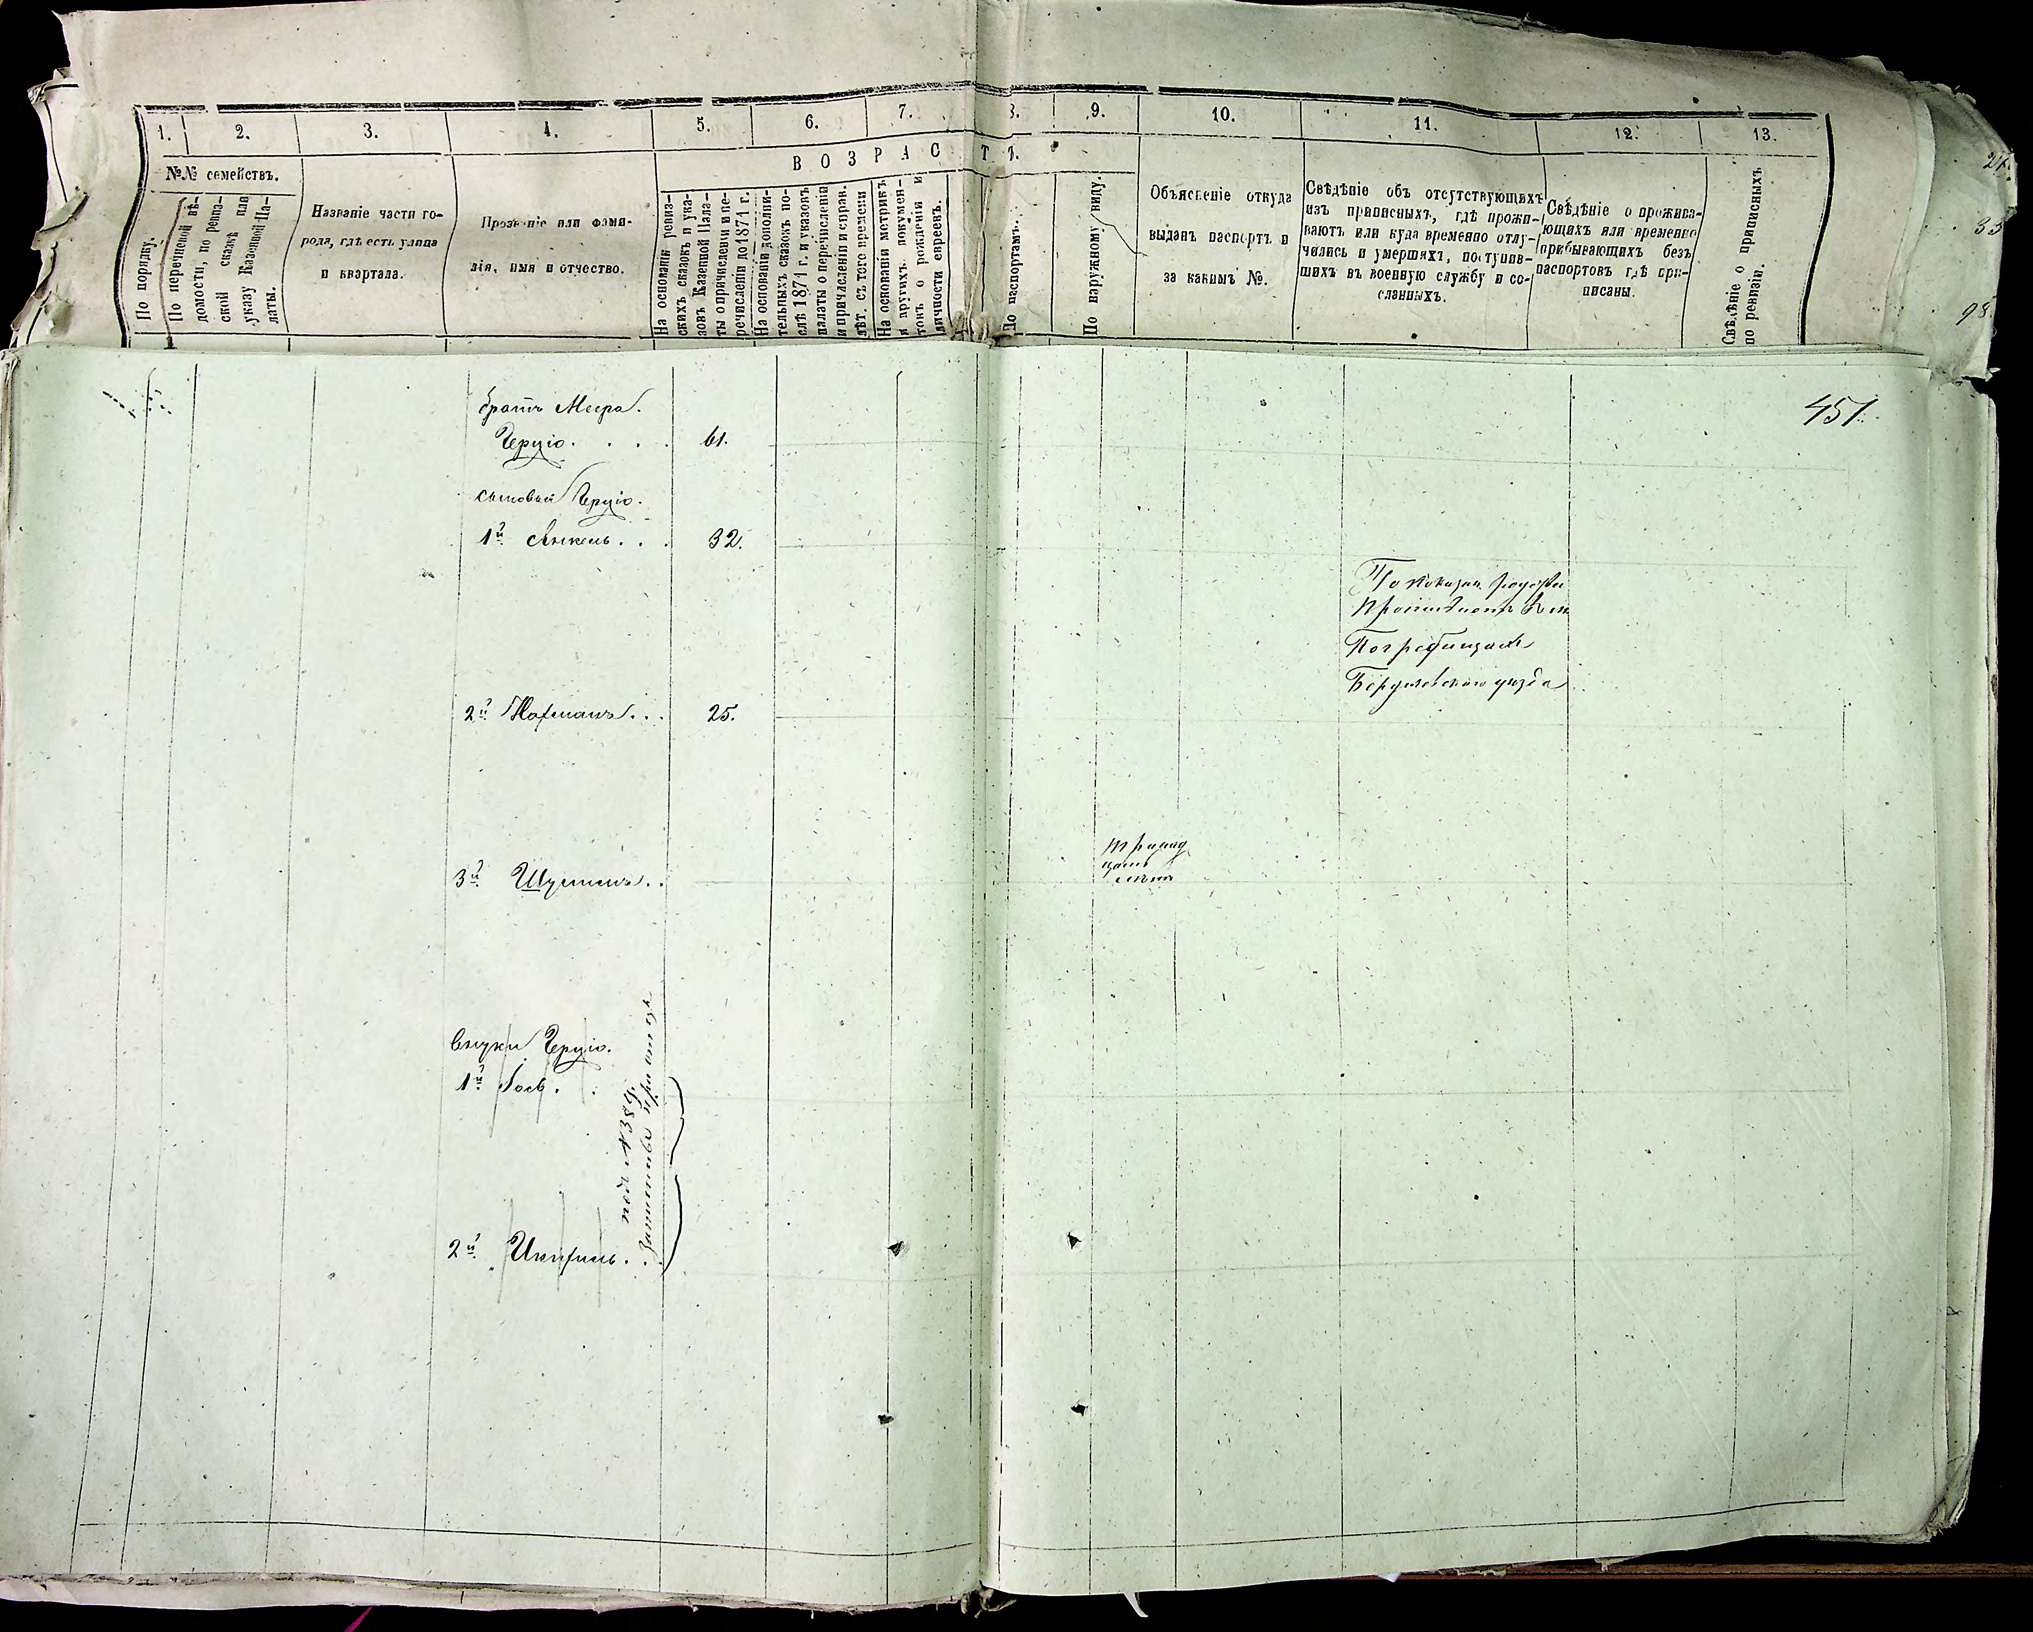 1. 2. 3. 4. 5. 6. 7. 8. 9. 10. 11. 12. 13.
ВОЗРАСТЪ.
№№ семействъ.
По порядку.
По перечневой вѣ-
домости, по ревиз-
ской сказкѣ или
указу Казенной Па-
латы.
Названіе части го-
рода, гдѣ есть улица
и квартала.
Прозваніе или фами-
лія, имя и отчество.
На основаніи ревиз-
скихъ сказокъ и ука-
зовъ Казенной Пала-
ты о причисленіи и пе-
речисленіи до 1871 г.
На основаніи дополни-
тельныхъ сказокъ по-
слѣ 1871 г. и указовъ
палаты о перечисленіи
и причисленіи и спрап.
лѣт. съ того времени
На основаніи метрикъ
и другихъ докумен-
товъ о рожденіи и
личности евреевъ.
По паспортамъ.
По наружному виду.
Объясненіе откуда
выданъ паспортъ и
за какимъ №.
Свѣдѣніе объ отсутствующихъ
изъ приписныхъ, гдѣ прожи-
ваютъ или куда временно отлу-
чились и умершихъ, поступив-
шихъ въ военную службу и со-
сланныхъ.
Свѣдѣніе о прожива-
ющихъ или временно
прибывающихъ безъ
паспортовъ гдѣ при-
писаны.
Свѣдѣніе о приписныхъ
по ревизіи.
451.
братъ Меера.
Герцio. . . . 61.
сыновья Герцio.
1й Янкель. . . 32.
По показан.
проживаютъ въ м
Погребищахъ
Бердичевского уѣзда
2й Нахманъ. . . 25.
3й Шулимъ. .
тринад
цать
лѣтъ
внуки Герцio.
1й Іось. .
под N 384.
Записаны при отцѣ
2й . .